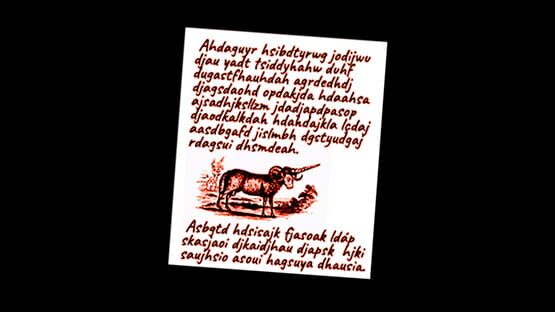 Ahdaguyr hsibdtyrwg jodijwv
djau yadt tsiddyhahw duhf
dugastfhauhdah agrdedhdj
djagsdaohd opdakjda hdaahsa
ajsadhjksllzm jdadjapdpasop
djaodkalkdah hdahdajkla lçdaj
aasdbgafd jislmbh dgstyudgaj
rdagsui dhsmdeah.
Asbgtd hdsisajk fjasoak ldáp
skasjaoi djkaidjhau djapsk hjki
saujhsio asoui hagsuya dhausia.